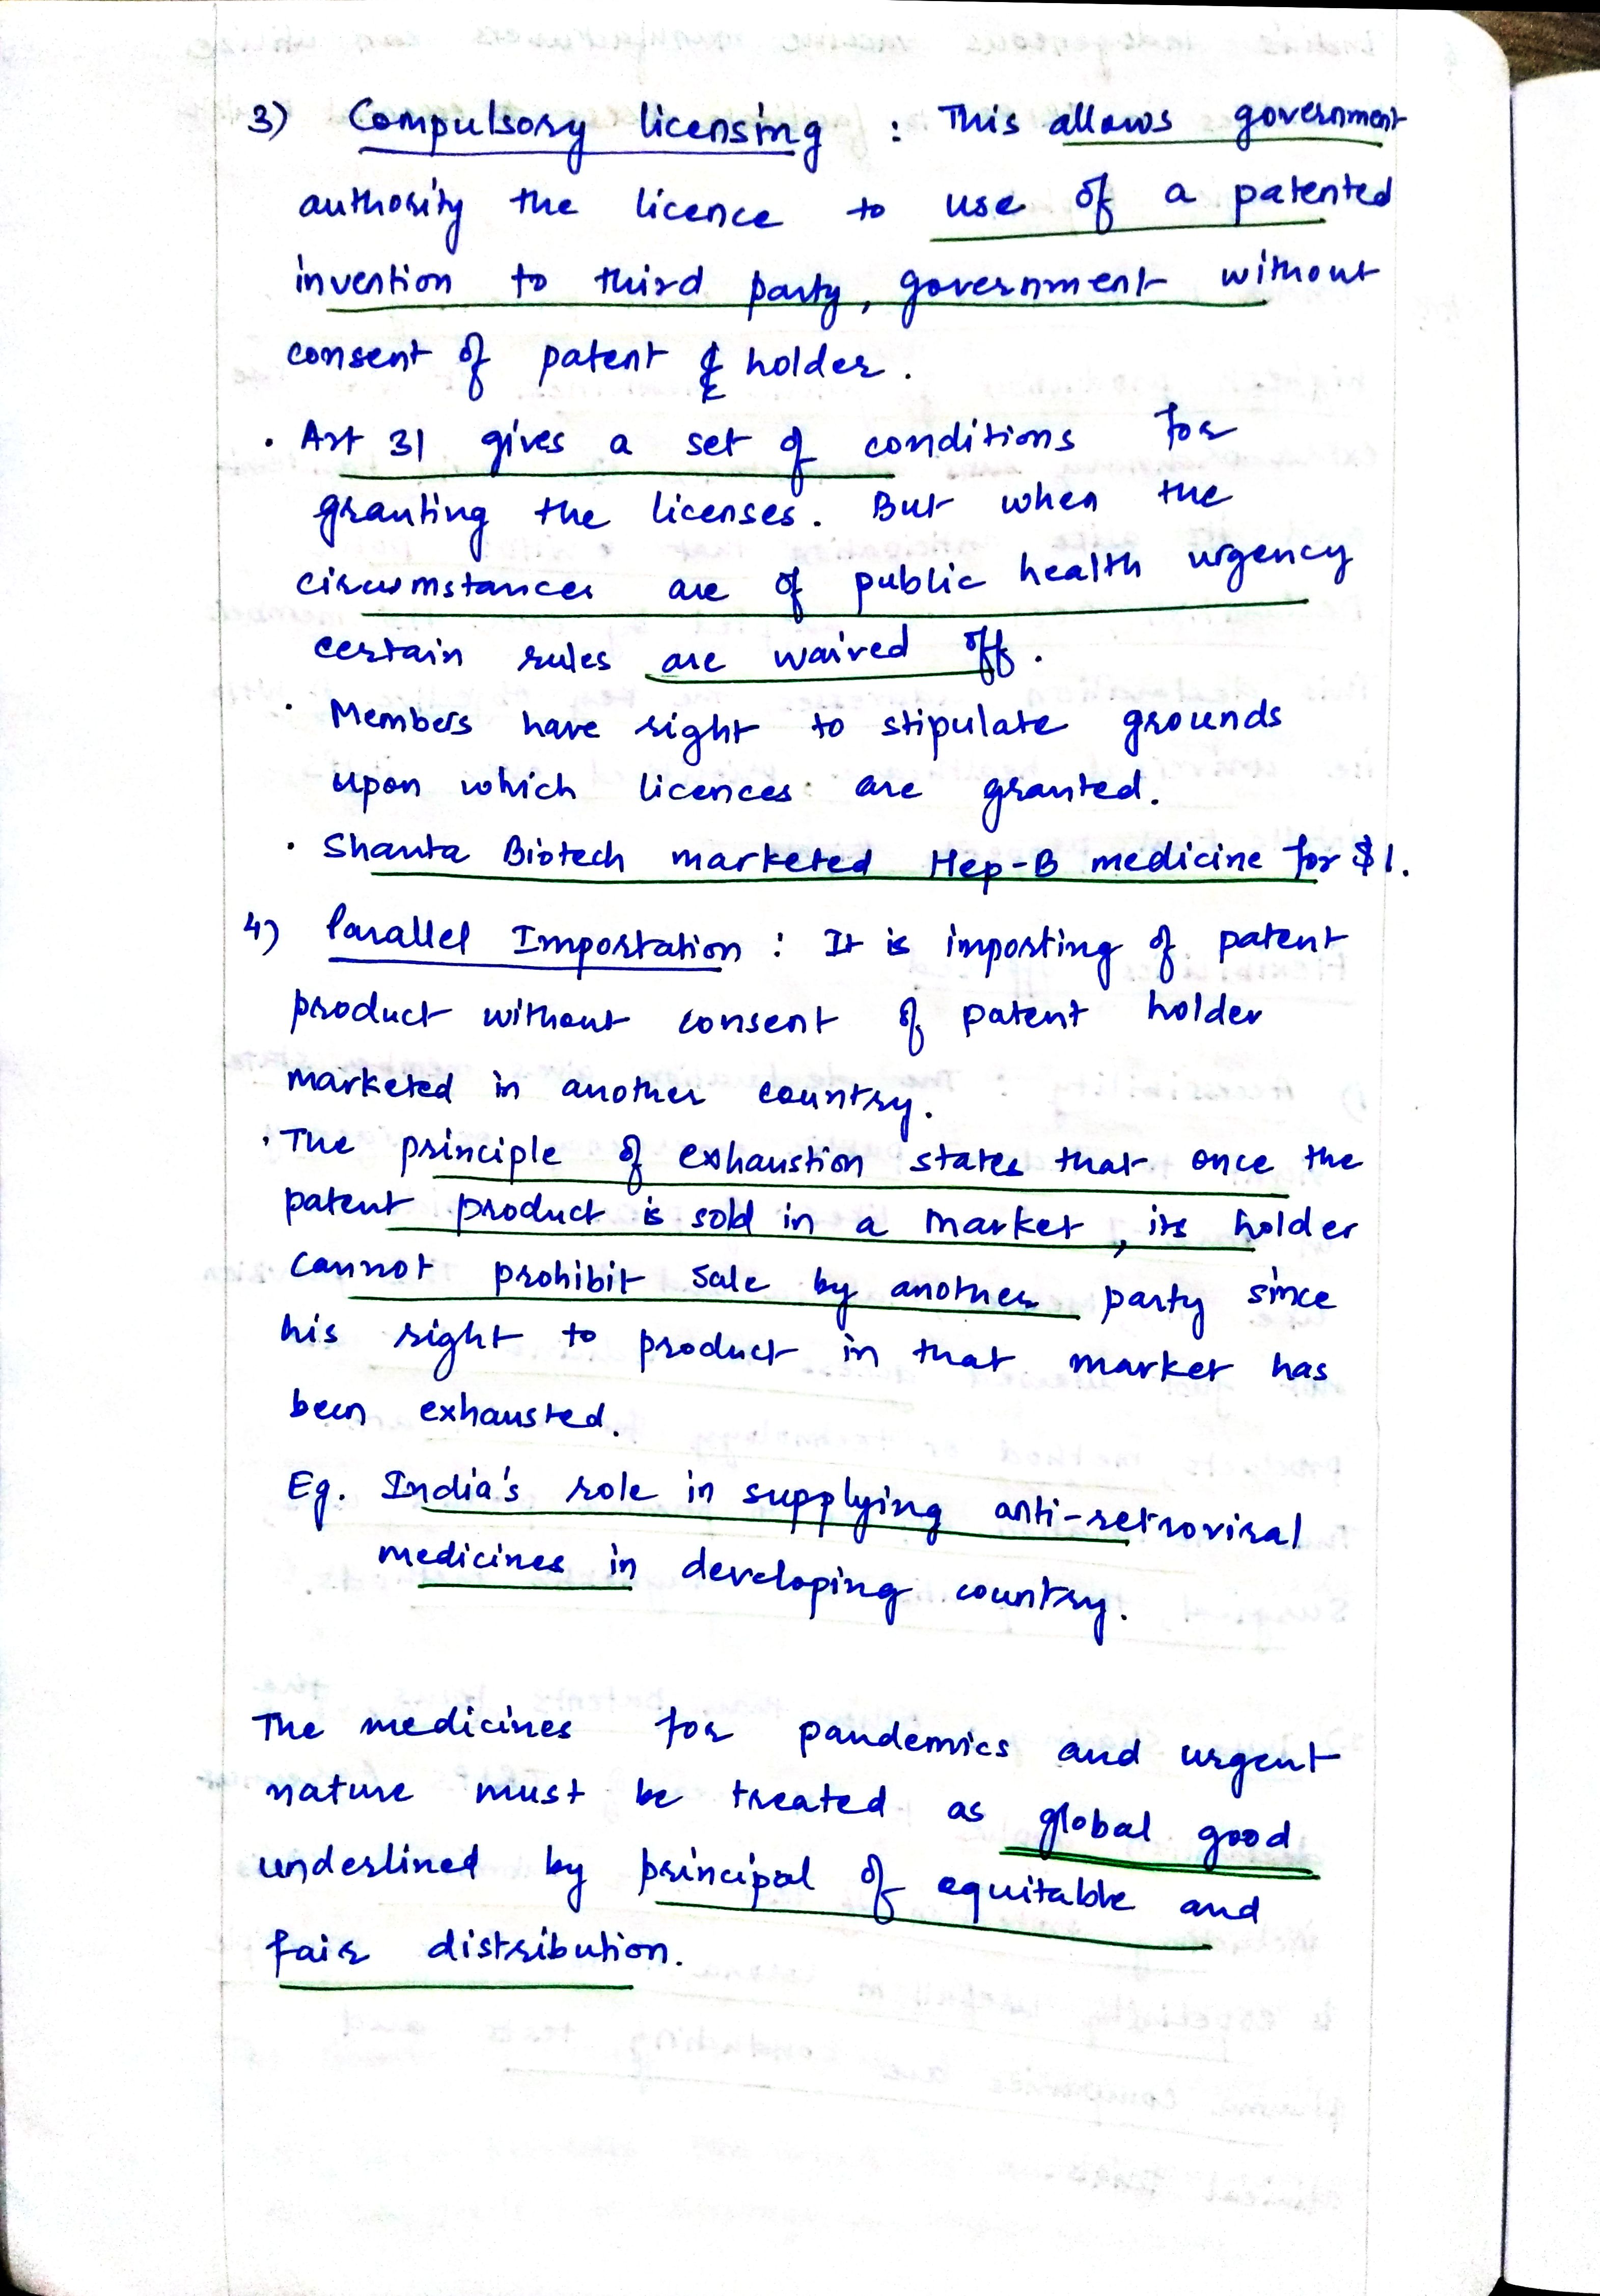 3) Compulsory licensing : This allows government
authority the licence to use of a patented
invention to third party, government without
consent of patent holder.
· Art 31 gives a set of conditions for
granting the licenses. But when the
circumstances are of public health urgency
certain rules are waived off.
· Members have right to stipulate grounds
upon which licences are granted.
· Shanta Biotech marketed Hep-B medicine for $1.
4) Parallel Importation : It is importing of patent
product without consent of patent holder
marketed in another country.
· The principle of exhaustion states that once the
patent product is sold in a market, its holder
cannot prohibit sale by another party since
his right to product in that market has
been exhausted.
Eg. India's role in supplying anti-retroviral
medicines in developing country.
The medicines for pandemics and urgent
nature must be treated as global good
underlined by principal of equitable and
fair distribution.